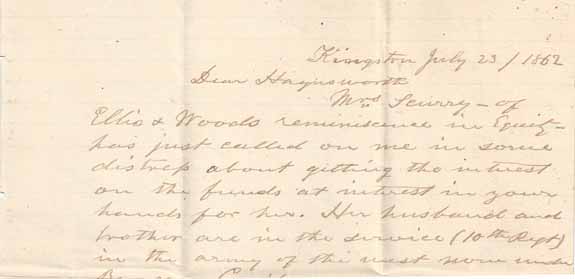 Kingston July 23/1862
Dear Haynsworth
Mrs Scurry - of
Ellis & Woods reminiscence in Equity -
has just called on me in some
distress about getting the interest
on the funds at interest in your
hands for her. Her husband and
brother are in the service (10th Regt)
in the army of the west now under